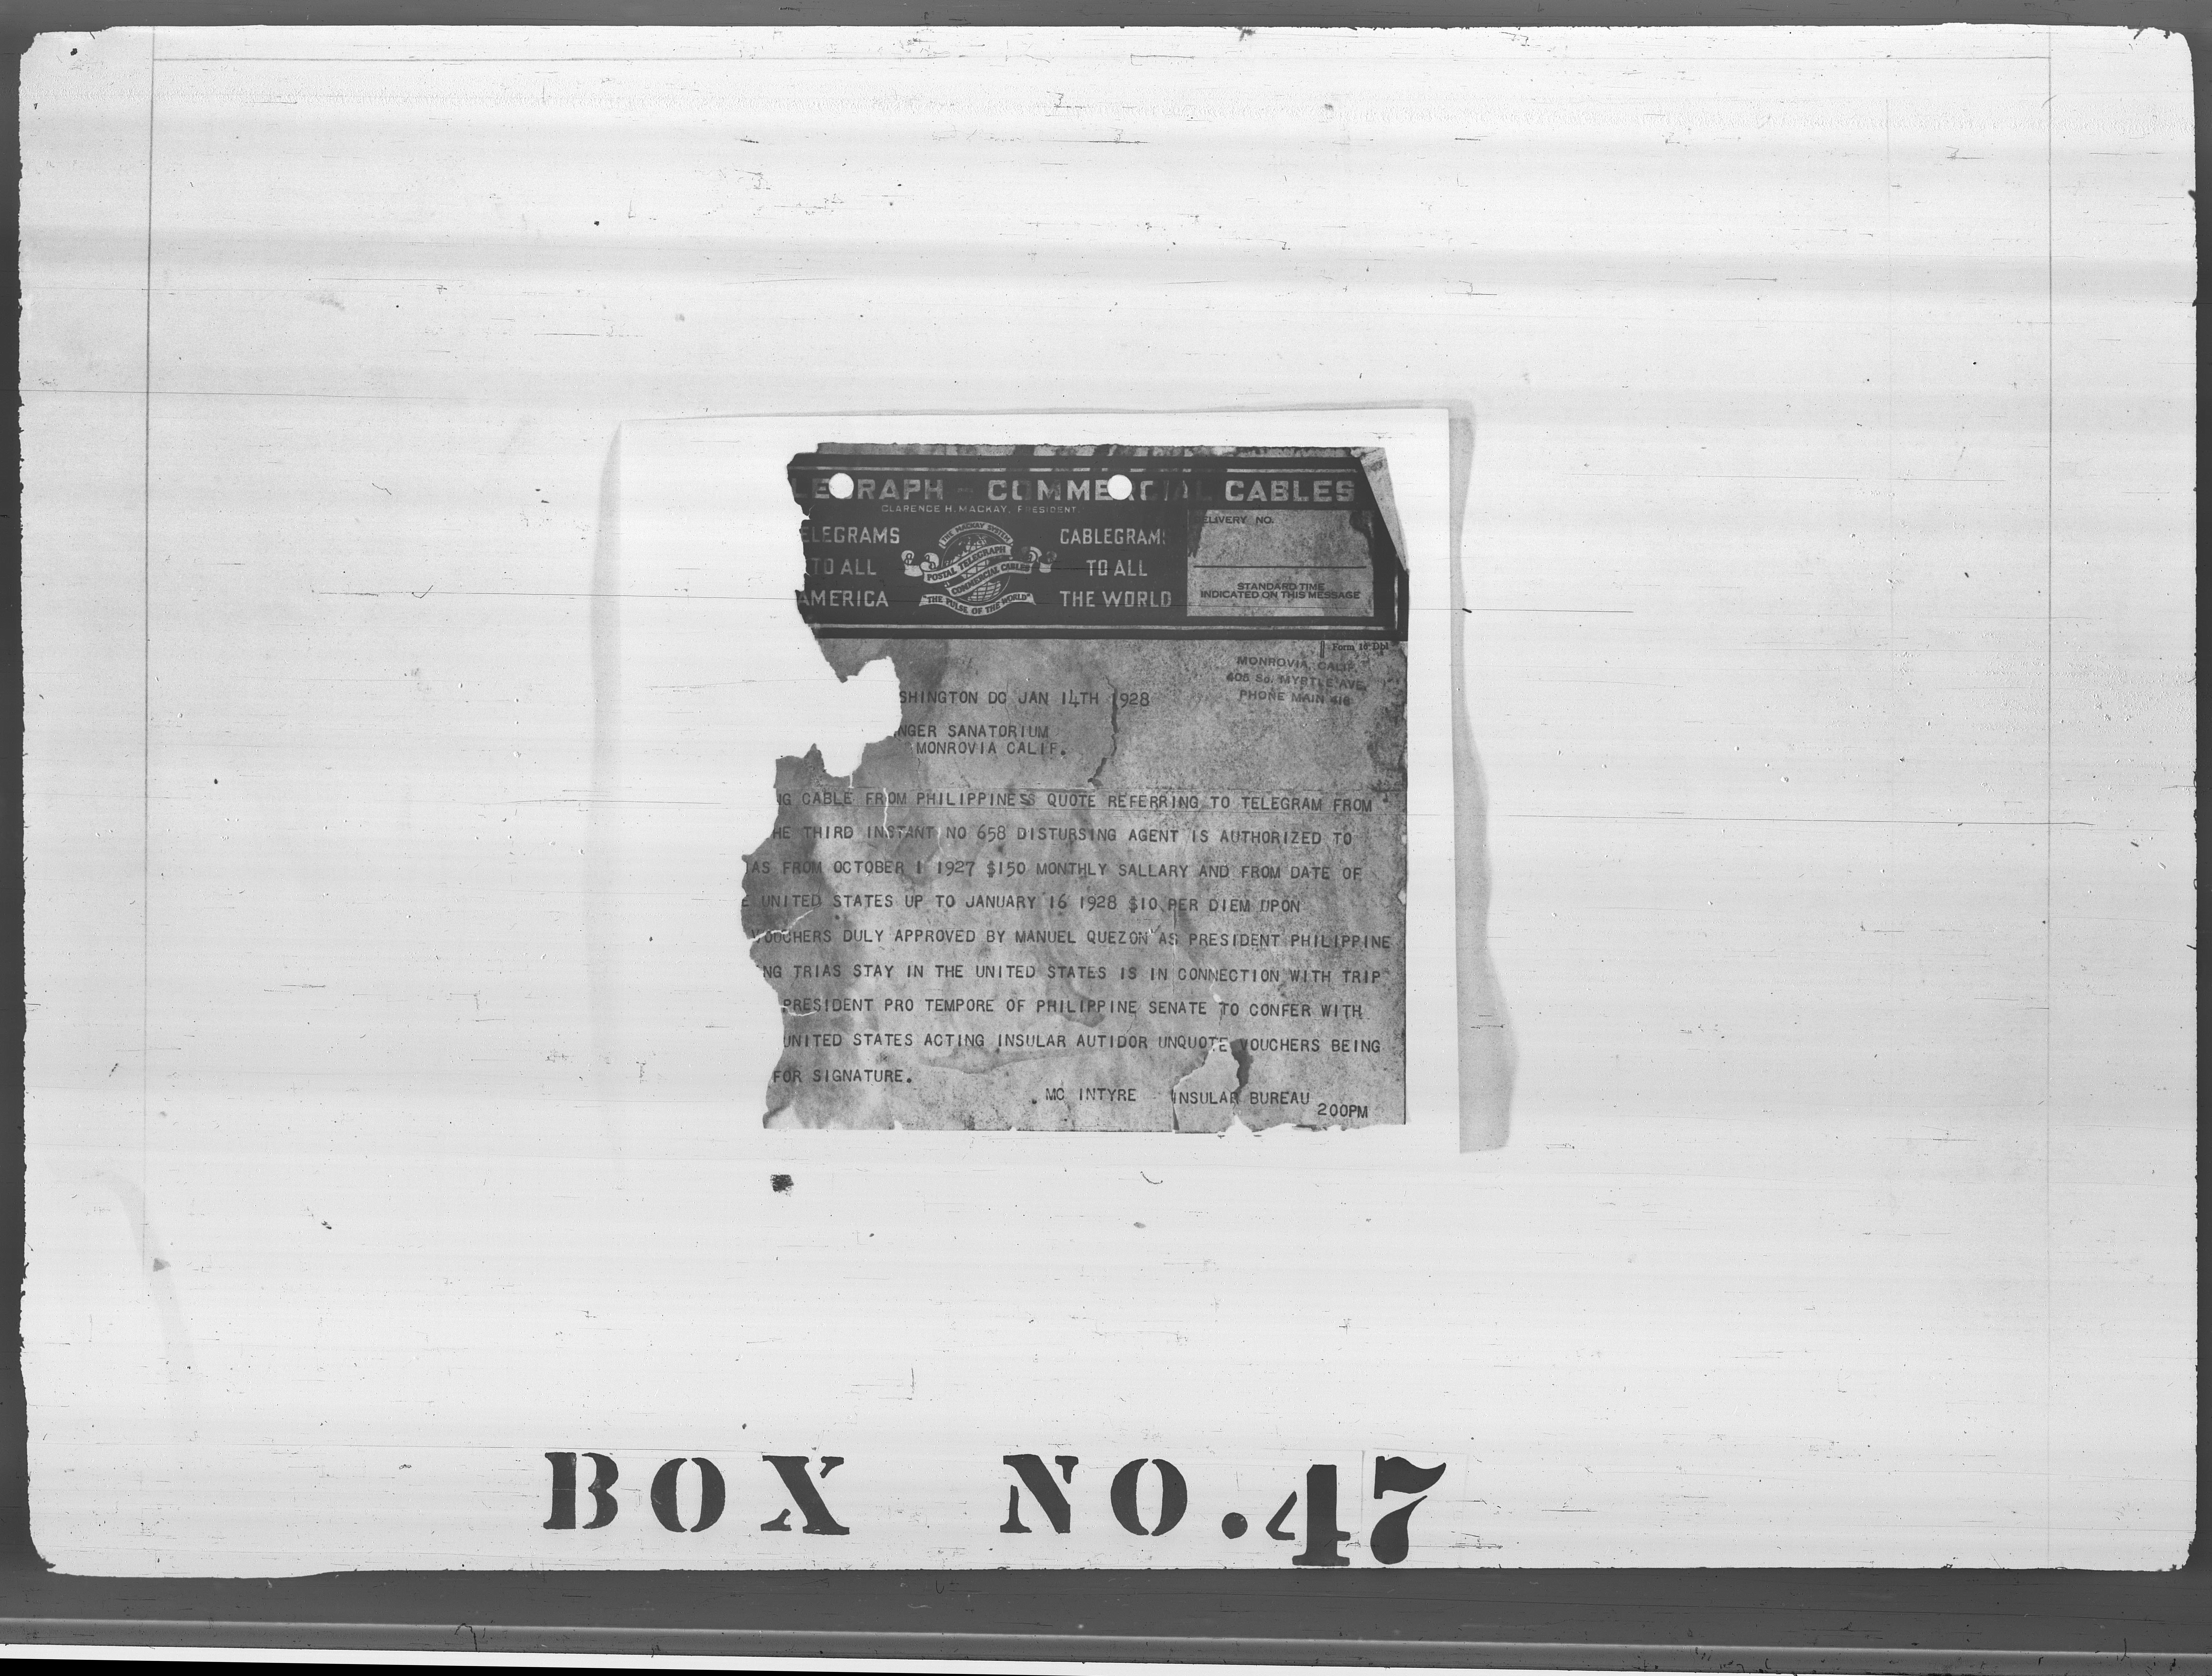 LEGRAPH - COMMERCIAL CABLES
CLARENCE H. MACKAY, PRESIDENT
ELEGRAMS
TO ALL
AMERICA
THE MACKAY SYSTEM
POSTAL TELEGRAPH
COMMERCIAL CABLES
"THE PULSE OF THE WORLD"
CABLEGRAMS
TO ALL
THE WORLD
DELIVERY NO.
STANDARD TIME
INDICATED ON THIS MESSAGE
Form 16 Dpl
MONROVIA, CALIF.
405 So. MYRTLE AVE.
PHONE MAIN 416
SHINGTON DC JAN 14TH 1928
NGER SANATORIUM
MONROVIA CALIF.
NG CABLE FROM PHILIPPINESS QUOTE REFERRING TO TELEGRAM FROM
HE THIRD INSTANT NO 658 DISTURSING AGENT IS AUTHORIZED TO
IAS FROM OCTOBER 1 1927 $150 MONTHLY SALLARY AND FROM DATE OF
E UNITED STATES UP TO JANUARY 16 1928 $10 PER DIEM UPON
VOUCHERS DULY APPROVED BY MANUEL QUEZON AS PRESIDENT PHILIPPINE
NG TRIAS STAY IN THE UNITED STATES IS IN CONNECTION WITH TRIP
PRESIDENT PRO TEMPORE OF PHILIPPINE SENATE TO CONFER WITH
UNITED STATES ACTING INSULAR AUTIDOR UNQUOTE VOUCHERS BEING
FOR SIGNATURE.
MC INTYRE INSULAR BUREAU
200PM
BOX NO.47